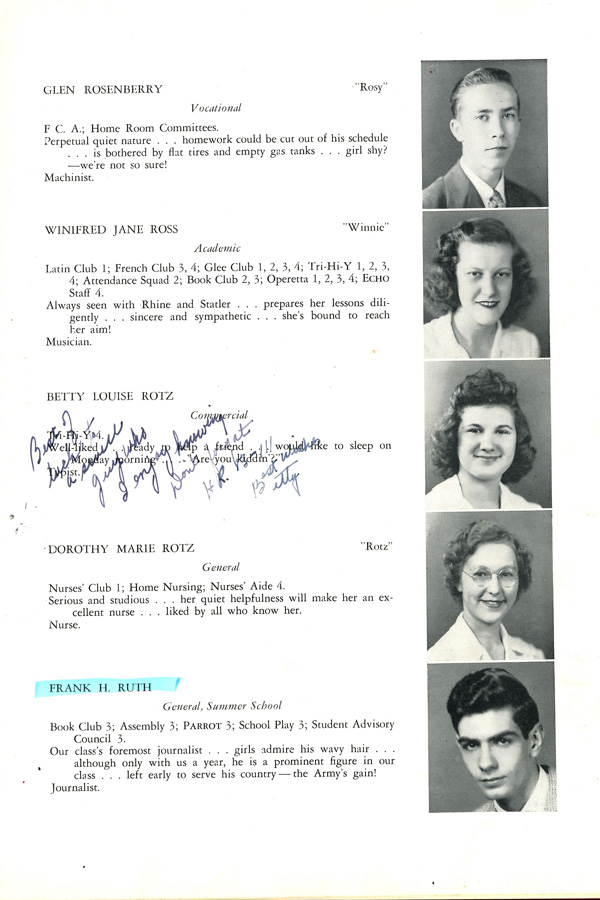 GLEN ROSENBERRY "Rosy"
Vocational
F C. A.; Home Room Committees.
Perpetual quiet nature . . . homework could be cut out of his schedule
. . . is bothered by flat tires and empty gas tanks . . . girl shy?
—we're not so sure!
Machinist.
WINIFRED JANE ROSS "Winnie"
Academic
Latin Club 1; French Club 3, 4; Glee Club 1, 2, 3, 4; Tri-Hi-Y 1, 2, 3,
4; Attendance Squad 2; Book Club 2, 3; Operetta 1, 2, 3, 4; ECHO
Staff 4.
Always seen with Rhine and Statler . . . prepares her lessons dili-
gently . . . sincere and sympathetic . . . she's bound to reach
her aim!
Musician.
BETTY LOUISE ROTZ
Commercial
Tri-Hi-Y 4.
Well-liked . . . ready to help a friend . . . would like to sleep on
Monday morning . . . "Are you kiddin'?"
Typist.
Best of
luck to
a swell
guy who
I enjoy knowing
Don't forget
H.R.
Best wishes
Betty
DOROTHY MARIE ROTZ "Rotz"
General
Nurses' Club 1; Home Nursing; Nurses' Aide 4.
Serious and studious . . . her quiet helpfulness will make her an ex-
cellent nurse . . . liked by all who know her.
Nurse.
FRANK H. RUTH
General, Summer School
Book Club 3; Assembly 3; PARROT 3; School Play 3; Student Advisory
Council 3.
Our class's foremost journalist . . . girls admire his wavy hair . . .
although only with us a year, he is a prominent figure in our
class . . . left early to serve his country—the Army's gain!
Journalist.